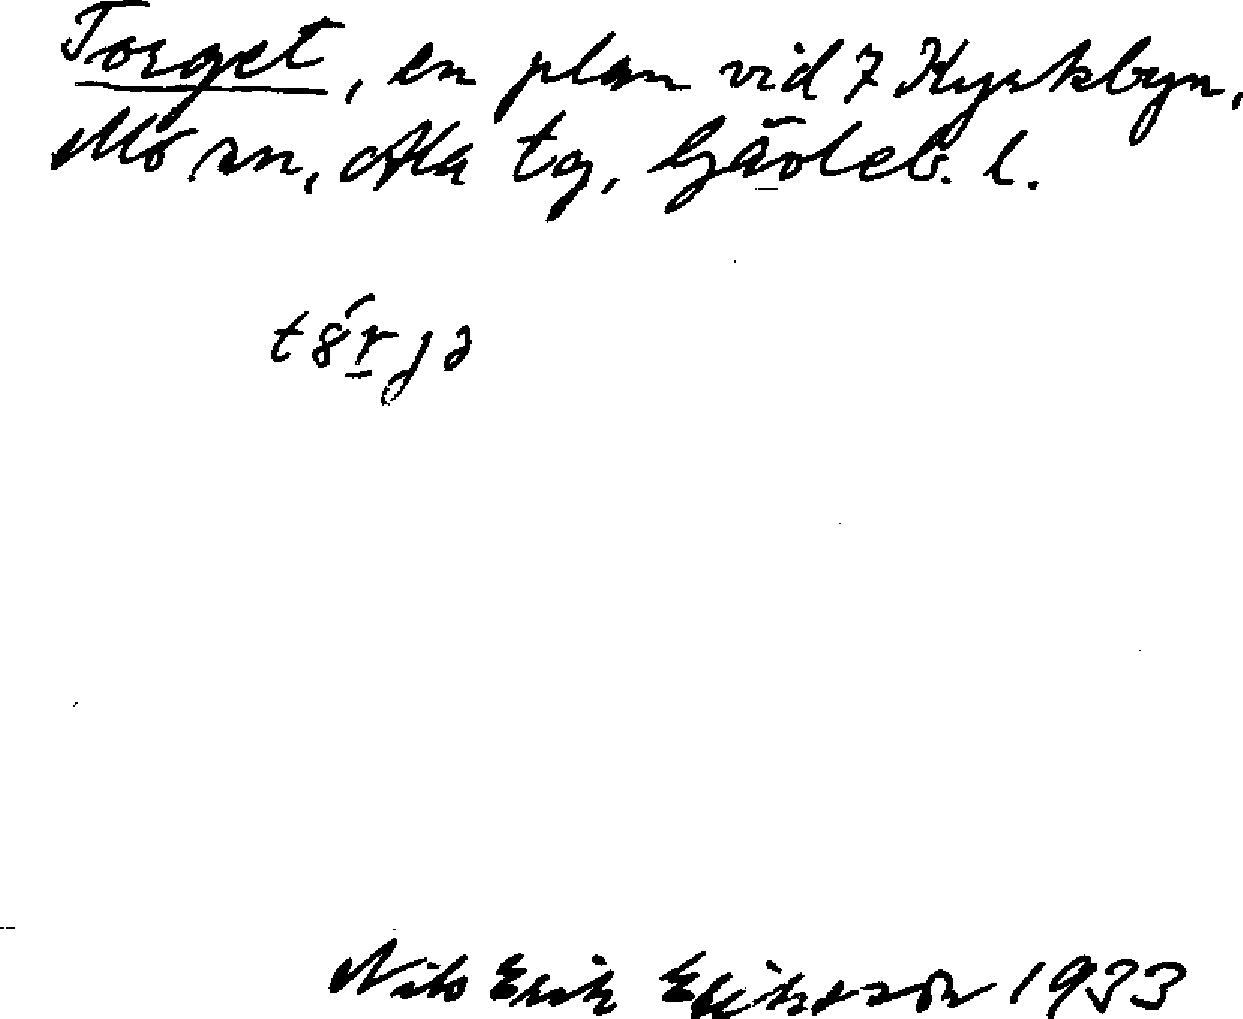 Torget, en plan vid 7 Kyrkbyn,
Mo sn, Ala tg, Gävleb. l.
t8́rjə
Nils Erik Eriksson 1933